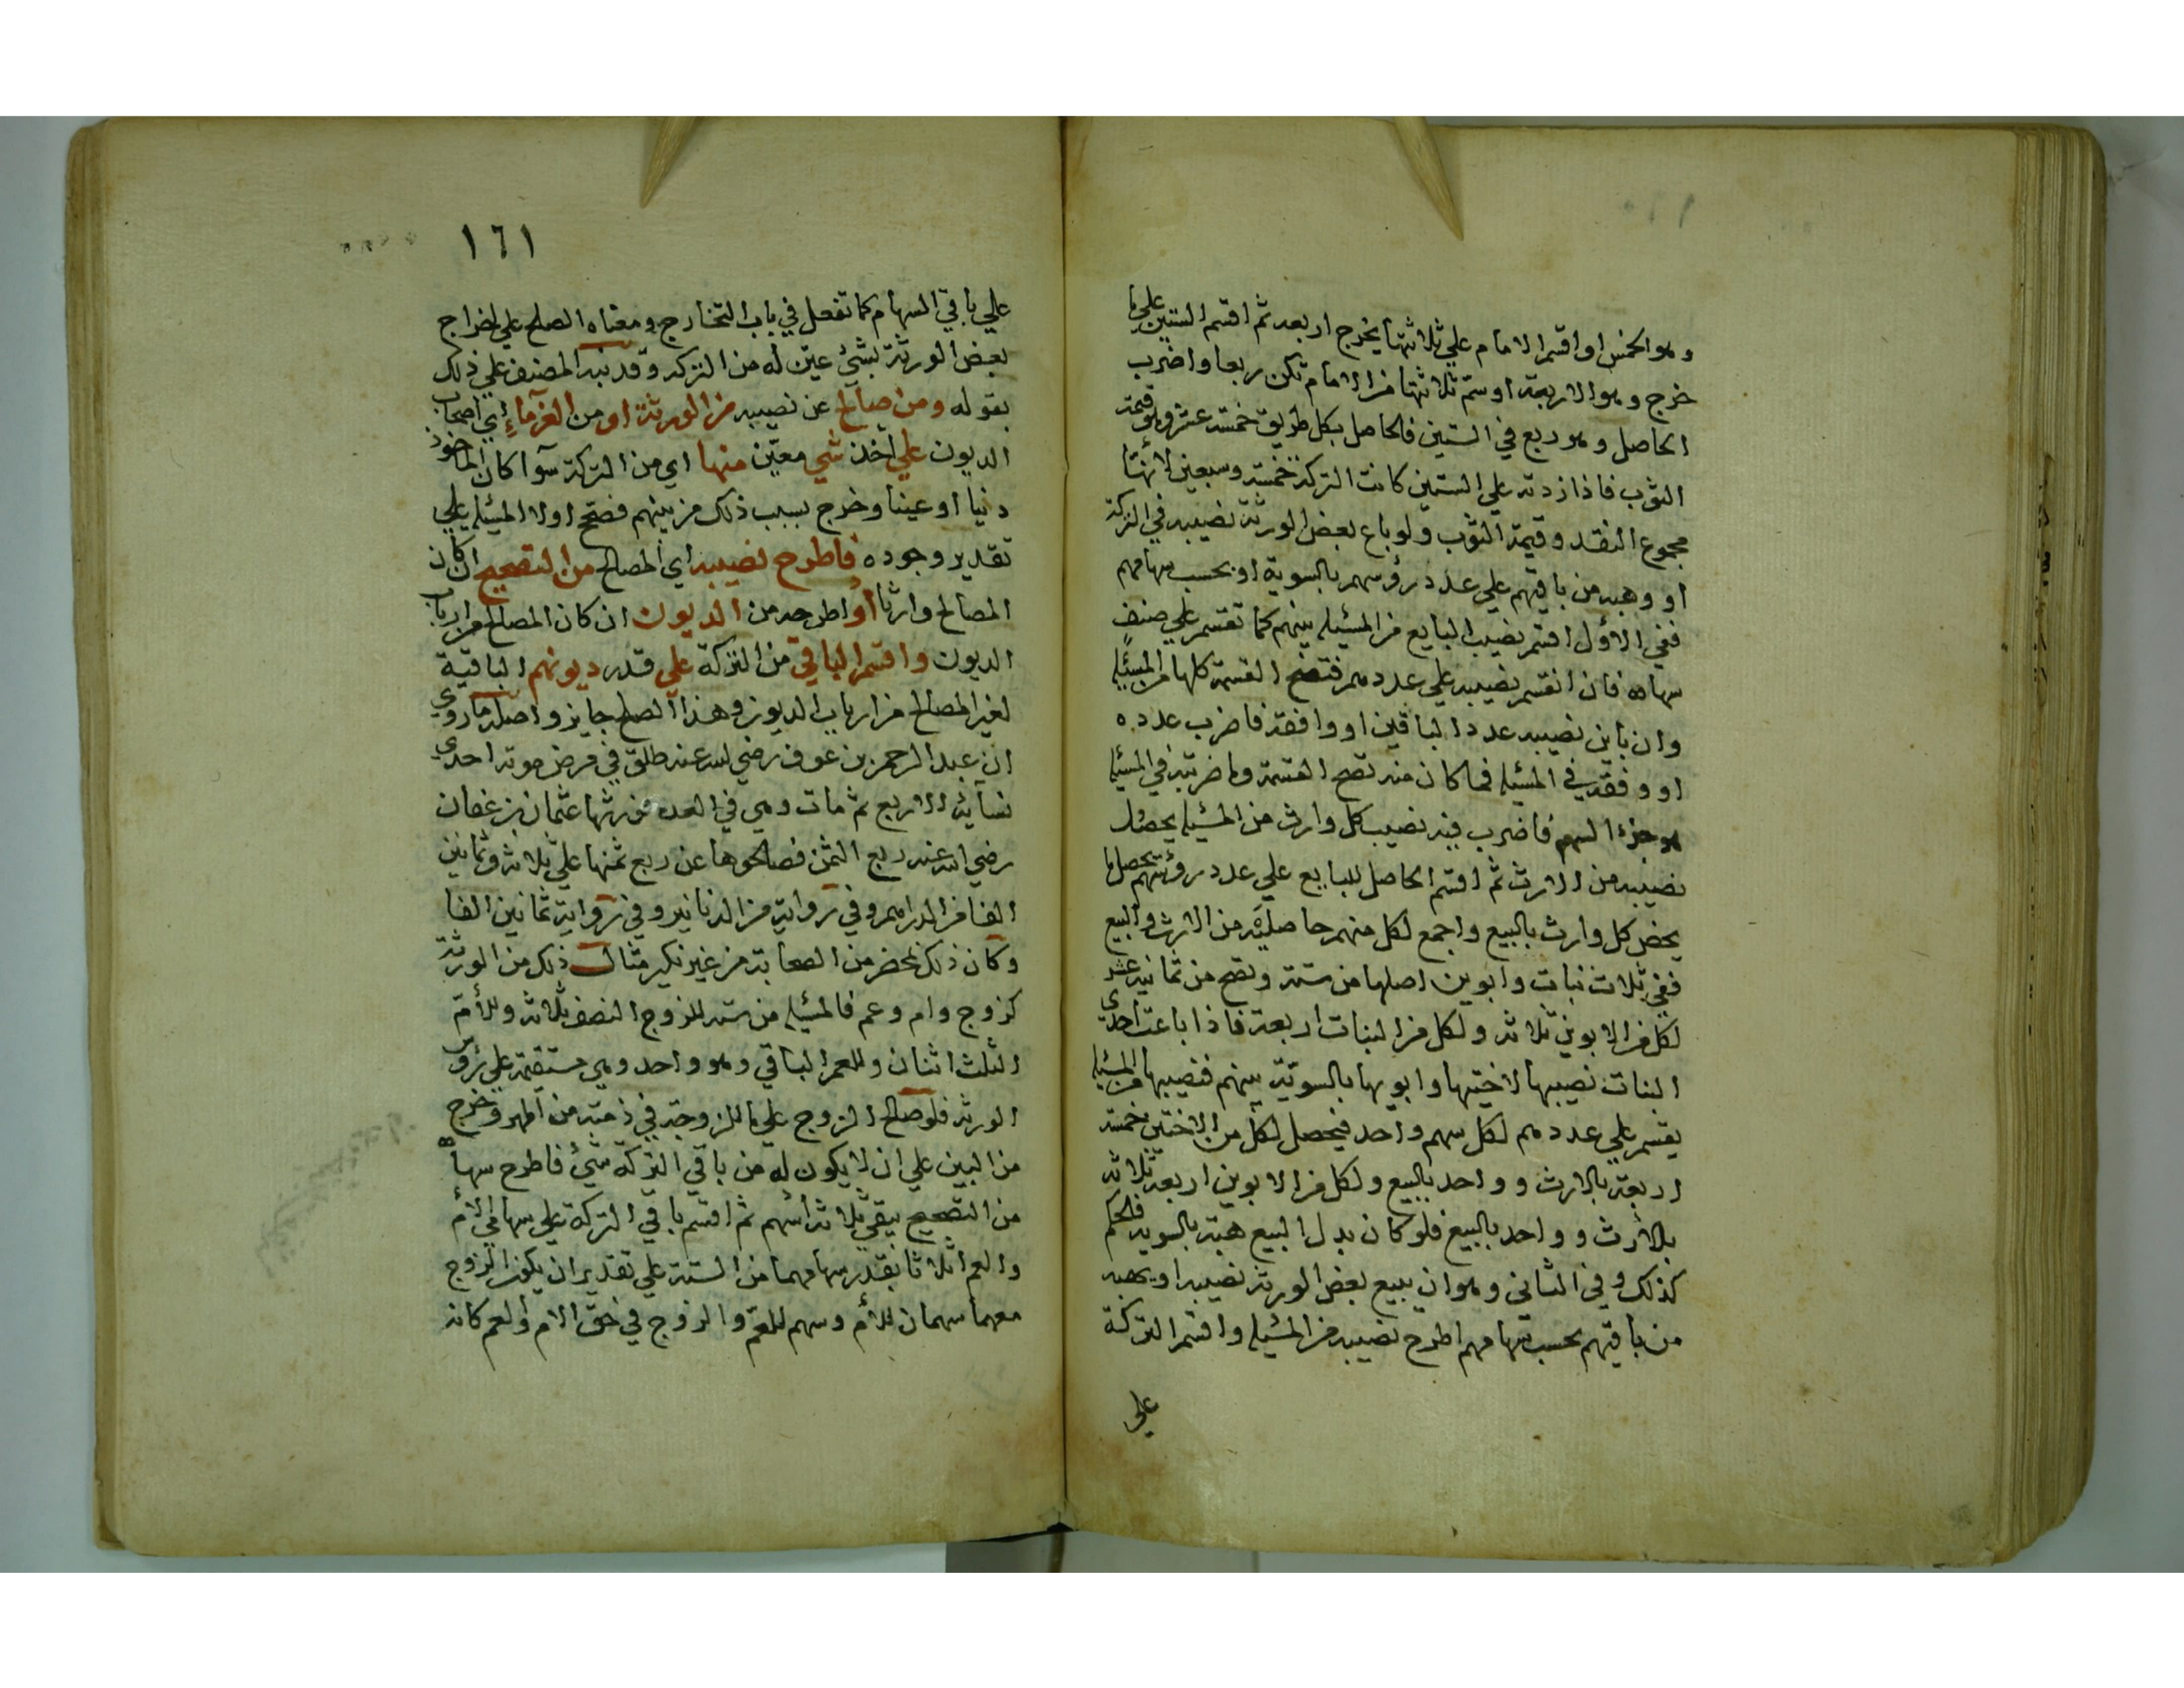 وهو الخمس او اقسم الامام علي ثلاثتها يخرج اربعة ثم اقسم الستين علي ما
خرج وهو الاربعة او سمّ ثلاثتها من الامام تكن ربعا واضرب
الحاصل وهو ربع في الستين فالحاصل بكل طريق خمسة عشر وهو قيمة
الثوب فاذا زدته علي الستين كانت التركة خمسة وسبعين لانها
مجموع النقد وقيمة الثوب ولو باع بعض الورثة نصيبه في التركة
او وهبه من باقيهم علي عدد رؤسهم بالسوية او بحسب سهامهم
ففي الاول اقسم نصيب البايع من المسئلة بينهم كما تقسم علي صنف
سهامه فان انقسم نصيبه علي عددهم فتصح القسمة كلها من المسئلة
وان باين نصيبه عدد الباقين او وافقه فاضرب عدده
او وفقه في المسئلة فما كان منه تصح القسمة وما ضربته في المسئلة
هو جزء السهم فاضرب فيه نصيب كل وارث من المسئلة يحصل
نصيبه من الارث ثم اقسم الحاصل للبايع علي عدد رؤسهم يحصل ما
يخص كل وارث بالبيع واجمع لكل منهم حاصليه من الارث والبيع
ففي ثلاث بنات وابوين اصلها من ستة وتصح من ثمانية عشر
لكل من الابوين ثلاثة ولكل من البنات اربعة فاذا باعت احدي
البنات نصيبها لاختيها وابويها بالسوية بينهم فنصيبها من المسئلة
يقسم علي عددهم لكل سهم واحد فيحصل لكل من الاختين خمسة
اربعة بالارث وواحد بالبيع ولكل من الابوين اربعة ثلاثة
بالارث وواحد بالبيع فلو كان بدل البيع هبة بالسوية فالحكم
كذلك وفي الثاني وهو ان يبيع بعض الورثة نصيبه او يهبه
من باقيهم بحسب سهامهم اطرح نصيبه من المسئلة واقسم التركة
علي
١٦١
علي باقي السهام كما تفعل في باب التخارج ومعناه الصلح علي اخراج
بعض الورثة بشئ عيّن له من التركة وقد نبه المصنف علي ذلك
بقوله ومن صالح عن نصيبه من الورثة او من الغرماء اي اصحاب
الديون علي اخذ شي معيّن منها اي من التركة سوآ كان الماخوذ
دينا او عينا وخرج بسبب ذلك من بينهم فصحح اولا المسئلة علي
تقدير وجوده فاطرح نصيبه اي المصالح من التصحيح ان كان
المصالح وارثا او اطرحه من الديون ان كان المصالح من ارباب
الديون واقسم الباقي من التركة علي قدر ديونهم الباقية
لغير المصالح من ارباب الديون وهذا الصلح جايز واصله ما روي
ان عبد الرحمن بن عوف رضي الله عنه طلق في مرض موته احدي
نسآئه الاربع ثم مات وهي في العدة فورثها عثمان بن عفان
رضي الله عنه ربع الثمن فصالحوها عن ربع ثمنها علي ثلاثة وثمانين
الفا من الدراهم وفي رواية من الدنانير وفي رواية ثمانين الفا
وكان ذلك بمحضر من الصحابة من غير نكير مثال ذلك من الورثة
كزوج وام وعم فالمسئلة من ستة للزوج النصف ثلاثة وللأم
الثلث اثنان وللعم الباقي وهو واحد وهي مستقيمة علي رؤس
الورثة فلو صالح الزوج علي ما للزوجة في ذمته من المهر وخرج
من البين علي ان لا يكون له من باقي التركة شئ فاطرح سهامه
من التصحيح يبقي ثلاثة أسهم ثم اقسم باقي التركة علي سهامي الأم
والعم اثلاثا بقدر سهامهما من الستة علي تقدير ان يكون الزوج
معهما سهمان للأم وسهم للعم والزوج في حق الام والعم كانه